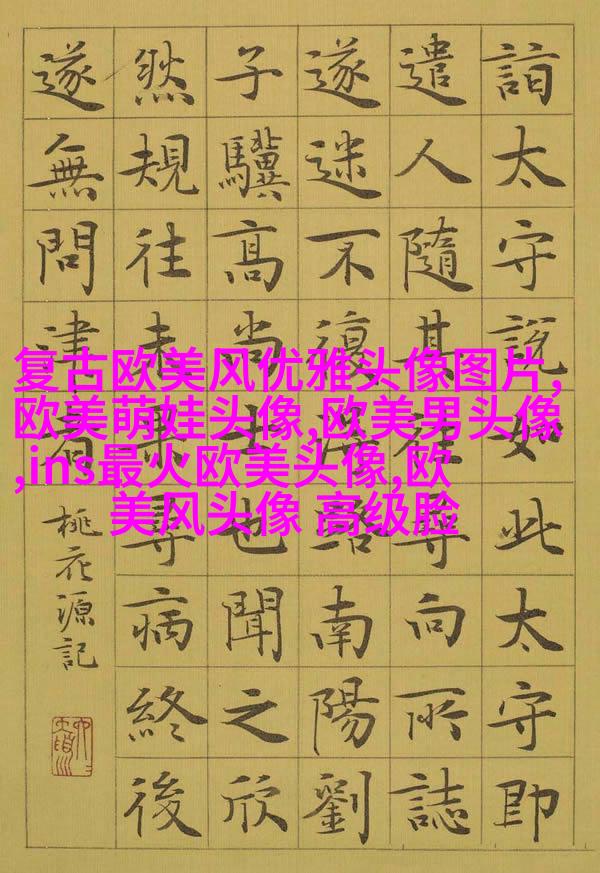 詣太守說如此太守即
遣人隨其往尋向所誌
遂迷不復得路南陽劉
子驥高尚士也聞之欣
然規往未果尋病終後
遂無問津者
桃花源記
复古欧美风优雅头像图片,
欧美萌娃头像,欧美男头像
,ins最火欧美头像,欧
美风头像 高级脸